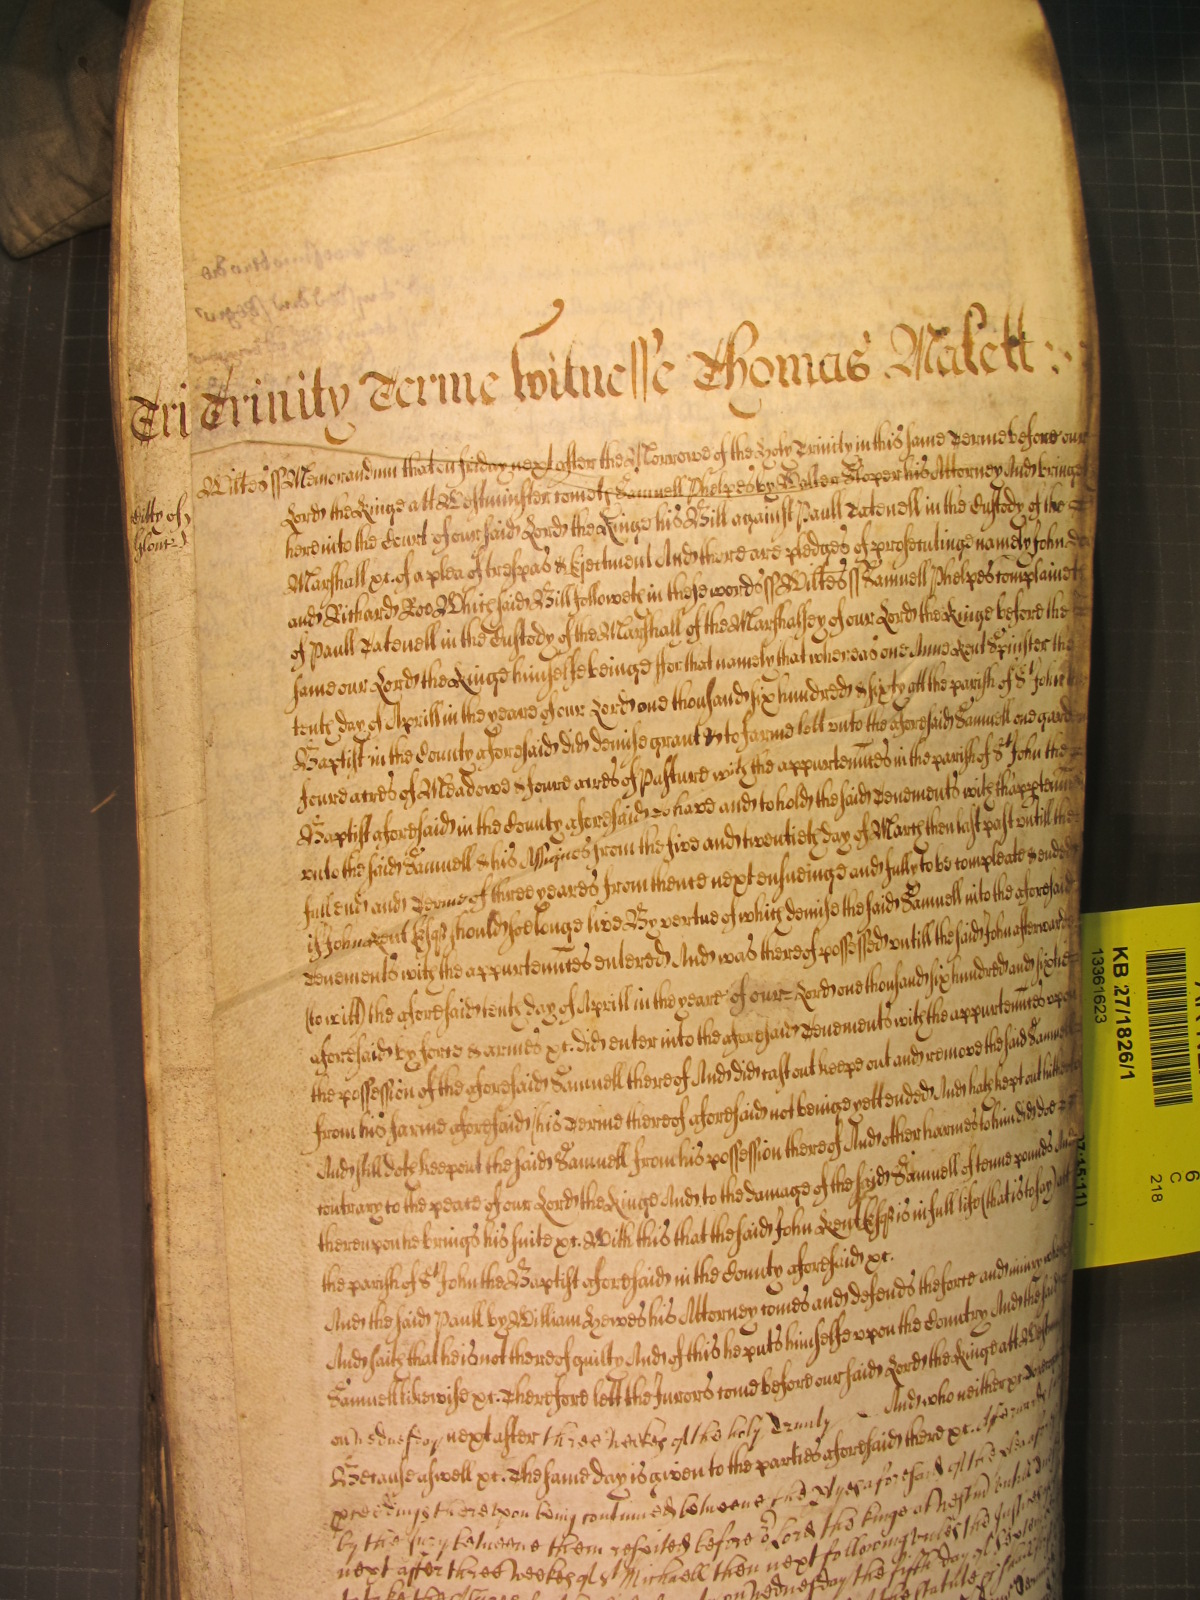 Tri Trinity Terme Witnesse Thomas Malett
Wiltes ss Memorandum that on friday next after the Morrowe of the Holy Trinity in this same Terme before our
Lord the Kinge att Westminster cometh Samuell Phelpes by Walter Sloper his Attorney And bringeth
here into the Court of our said Lord the Kinge his Bill against Paull Tatenell in the Custody of the
Marshall xc. of a plea of trespas & Ejectment And there are pledges of prosecutinge namely John Doe
and Richard Roe Which said Bill followeth in these words ss Wiltes ss Samuell Phelpes complaineth
of Paull Tatenell in the Custody of the Marshall of the Marshallsey of our Lord the Kinge before the
same our Lord the Kinge himselfe beinge ffor that namely that whereas one Anne Kent Spinster the
tenth day of Aprill in the yeare of our Lord one thousand six hundred & sixty att the parish of St John the
Baptist in the County aforesaid did demise grant & to farme lett unto the aforesaid Samuell one garden
foure acres of Meadowe & foure acres of Pasture with the appurtennces in the parish of St John the
Baptist aforesaid in the County aforesaid to have and to hold the said Tenements with thapptennces
unto the said Samuell & his Assignes from the five and twentieth day of March then last past untill the
full end and Terme of three yeares from thence next ensueinge and fully to be compleate & ended
if John Kent Esqr should soe longe live By vertue of which demise the said Samuell into the aforesaid
tenements with the appurtennces entered And was thereof possessed untill the said John afterwards
(to witt) the aforesaid tenth day of Aprill in the yeare of our Lord one thousand six hundred and sixtie
aforesaid by force & armes xc. did enter into the aforesaid Tenements with the appurtennces upon
the possession of the aforesaid Samuell thereof And did cast out keepe out and remove the said Samuell
from his farme aforesaid (his Terme thereof aforesaid not beinge yett ended And hath kept out hitherto
And still doth keep out the said Samuell from his possession thereof And other harmes to him did doe
contrary to the peace of our Lord the Kinge And to the damage of the said Samuell of tenne pounds And
thereupon he brings his suite xc. With this that the said John Kent Esqr is in full life (that is to say) att
the parish of St John the Baptist aforesaid in the County aforesaid xc.
And the said Paull by William Hewes his Attorney comes and defends the force and iniury when
And saith that he is not thereof guilty And of this he puts himselfe upon the Country And the said
Samuell likewise xc. Therefore lett the Jurors come before our said Lord the Kinge att Westm
on Wednesday next after three weekes of the holy Trinity And who neither xc.
Because aswell xc. The same day is given to the parties aforesaid there xc. Afterwards
thereupon being continued betweene the ptyes aforesaid of the plea
by the Jury betweene them respited before or Lord the kinge at Westm untill
next after three weekes of St Michaell then next following unles the Justices
on Wednesday the fifth day of